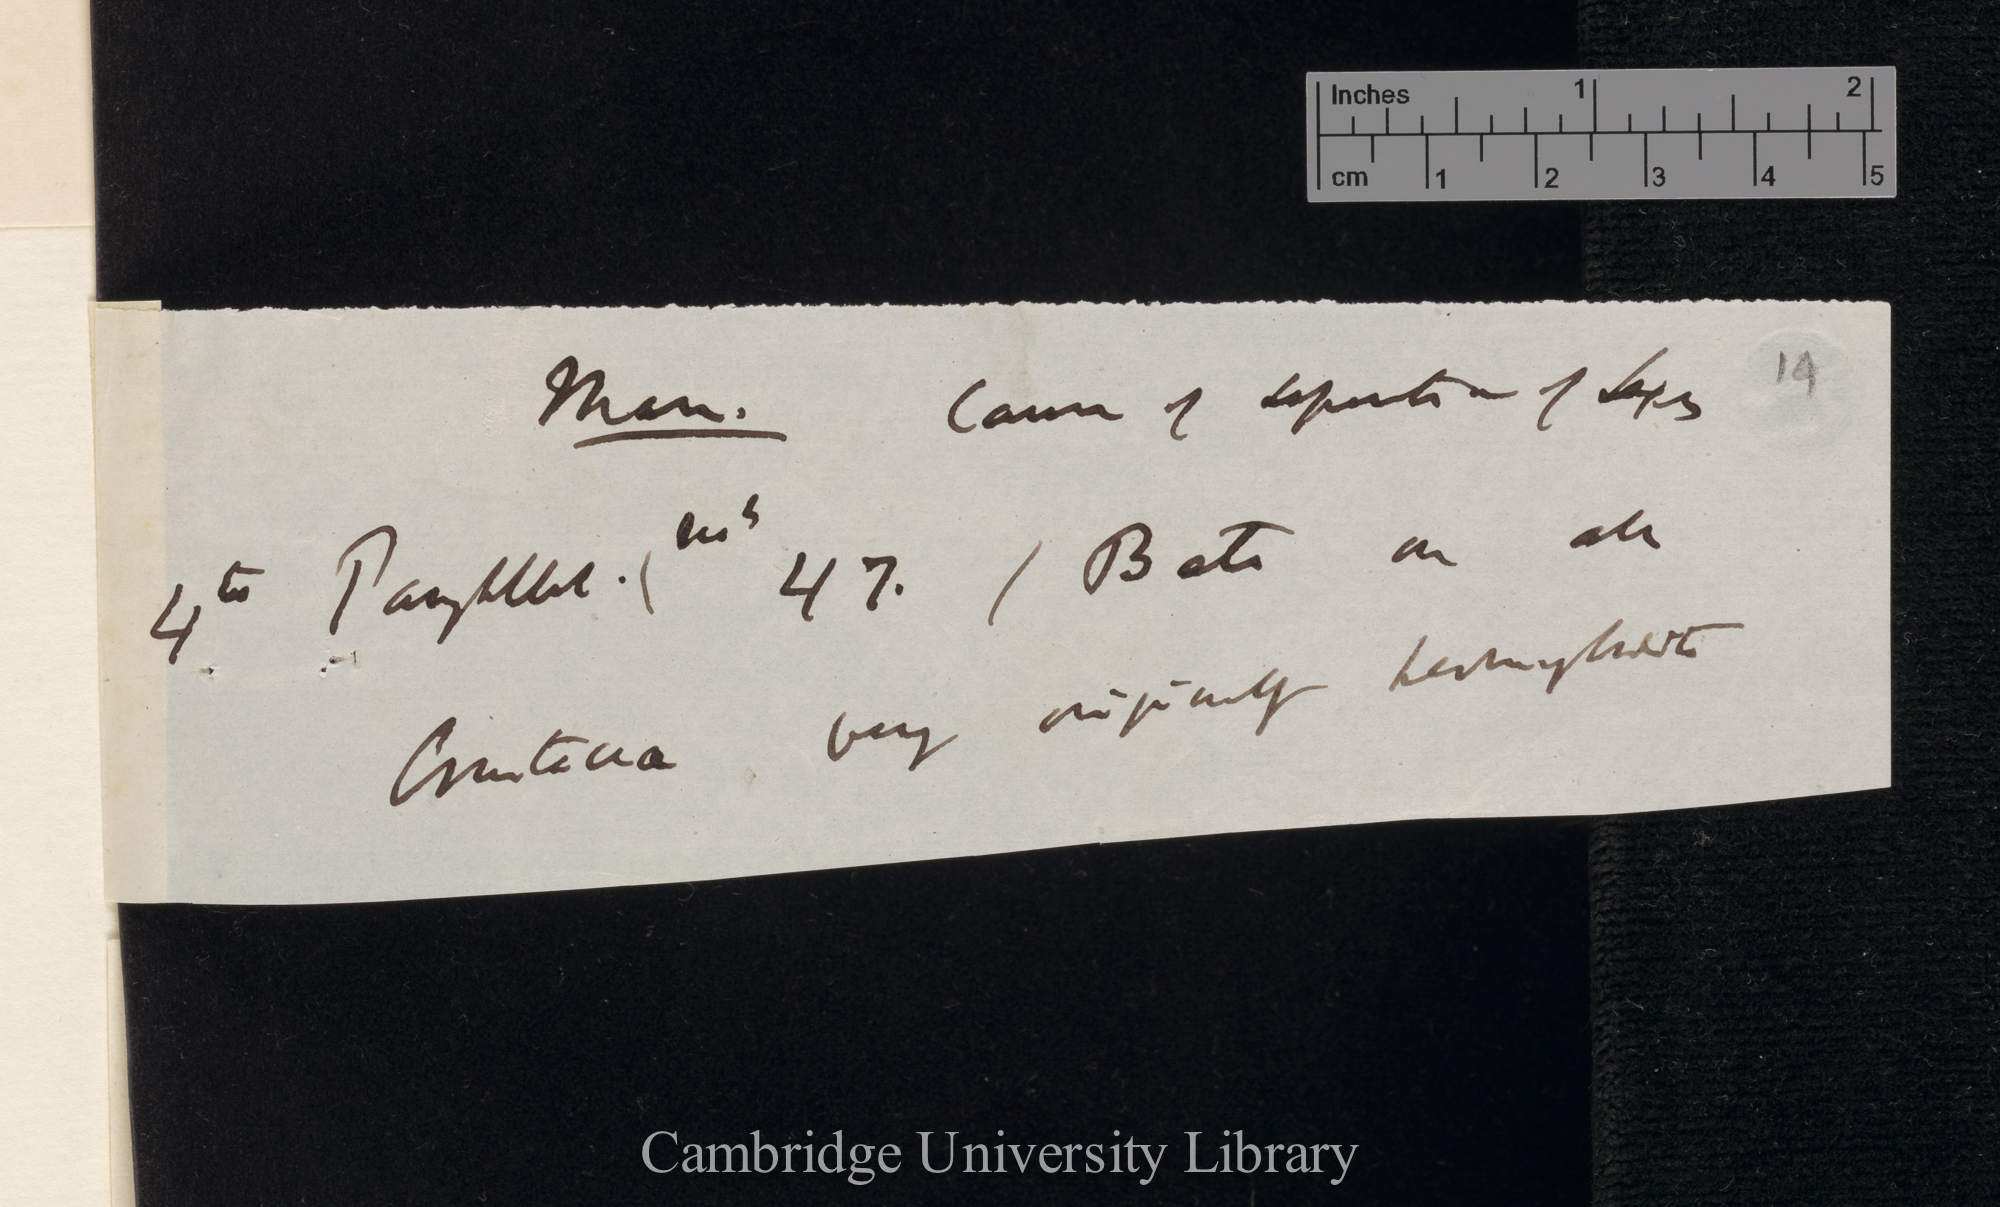 Inches 1 2
cm 1 2 3 4 5
Man. Cause of separation of Sexes 19
4to Pamphlet. (No 47. / Bate on all
Crustacea being originally hermaphrodite
Cambridge University Library